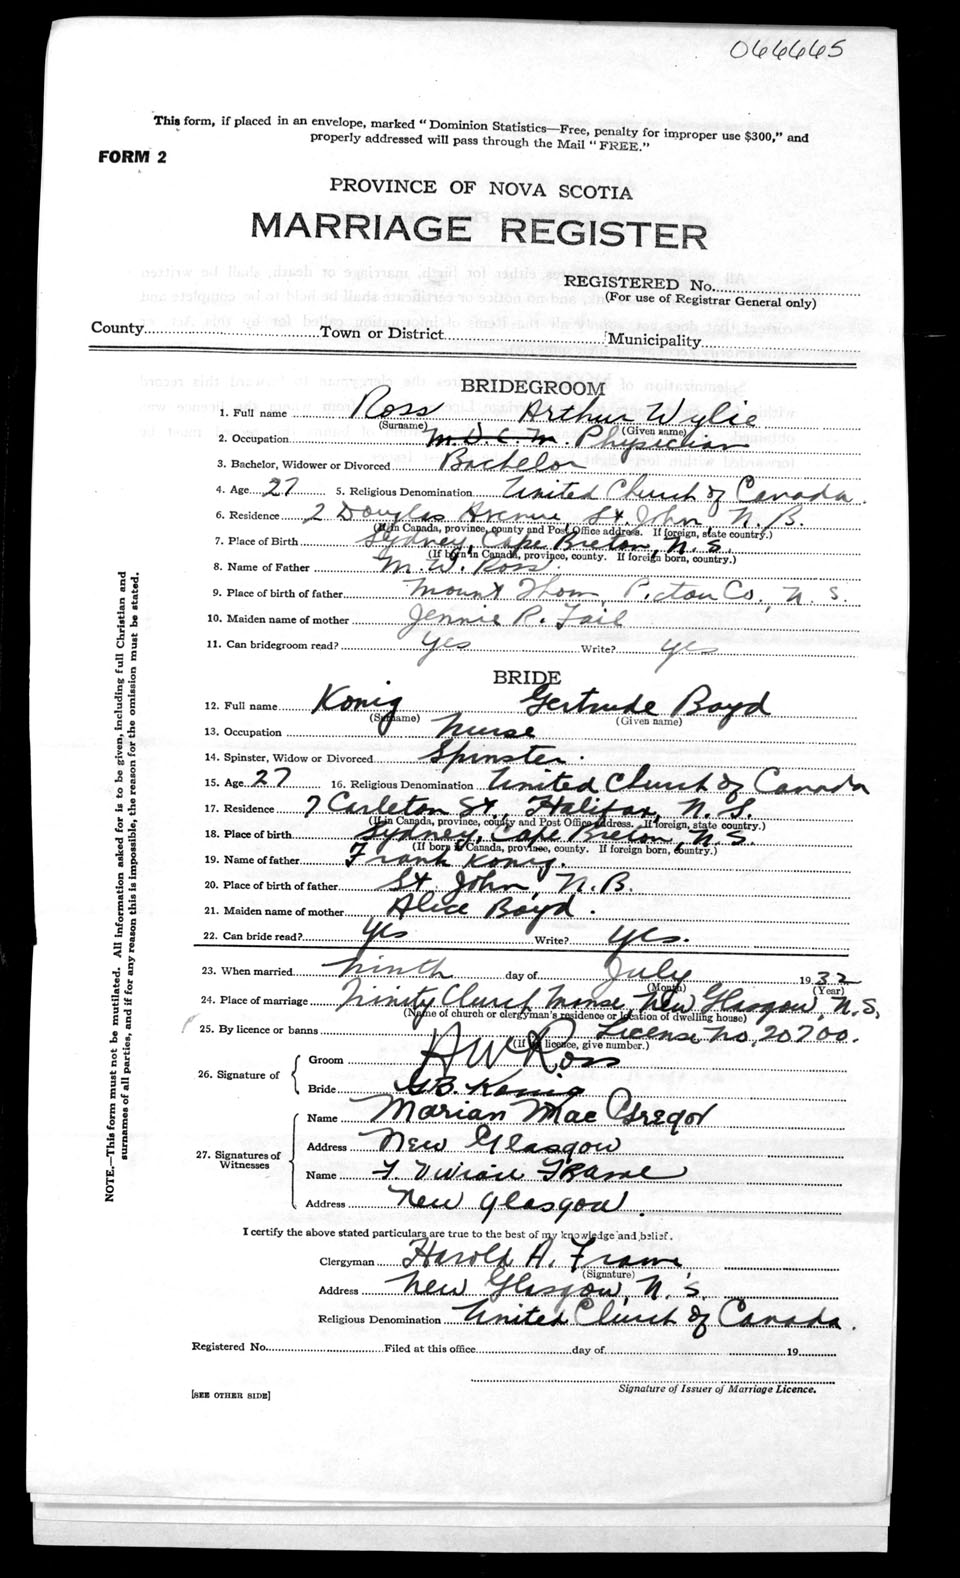 066665
This form, if placed in an envelope, marked "Dominion Statistics—Free, penalty for improper use $300," and
properly addressed will pass through the Mail "FREE."
FORM 2
PROVINCE OF NOVA SCOTIA
MARRIAGE REGISTER
REGISTERED No.
(For use of Registrar General only)
County Town or District Municipality
BRIDEGROOM
1. Full name Ross Arthur Wylie
(Surname) (Given name)
2. Occupation M.D.C.M. Physician
3. Bachelor, Widower or Divorced Bachelor
4. Age 27 5. Religious Denomination United Church of Canada.
6. Residence 2 Douglas Avenue, St. John, N.B.
(If in Canada, province, county and Post Office address. If foreign, state country.)
7. Place of Birth Sydney, Cape Breton, N.S.
(If born in Canada, province, county. If foreign born, country.)
8. Name of Father M. W. Ross
9. Place of birth of father Mount Thom, Pictou Co., N.S.
10. Maiden name of mother Jennie P.
11. Can bridegroom read? Yes Write? yes
BRIDE
12. Full name Konig Gertrude Boyd
(Surname) (Given name)
13. Occupation Nurse
14. Spinster, Widow or Divorced Spinster.
15. Age 27 16. Religious Denomination United Church of Canada
17. Residence 7 Carleton St., Halifax, N.S.
(If in Canada, province, county and Post Office address. If foreign, state country.)
18. Place of birth Sydney, Cape Breton, N.S.
(If born in Canada, province, county. If foreign born, country.)
19. Name of father Frank Konig.
20. Place of birth of father St. John, N.B.
21. Maiden name of mother Alice Boyd.
22. Can bride read? Yes Write? Yes.
23. When married Ninth day of July 1932
(Month) (Year)
24. Place of marriage Trinity Church Manse, New Glasgow, N.S.
(Name of church or clergyman's residence or location of dwelling house)
25. By licence or banns License No. 20700.
(If by licence, give number.)
26. Signature of
Groom A W Ross
Bride G.B. Konig
27. Signatures of Witnesses
Name Marian MacGregor
Address New Glasgow
Name F. Vivian Frame
Address New Glasgow.
I certify the above stated particulars are true to the best of my knowledge and belief.
Clergyman Harold A. Frame,
(Signature)
Address New Glasgow, N.S.
Religious Denomination United Church of Canada.
Registered No. Filed at this office day of 19
Signature of Issuer of Marriage Licence.
[SEE OTHER SIDE]
NOTE.—This form must not be mutilated. All information asked for is to be given, including full Christian and
surnames of all parties, and if for any reason this is impossible, the reason for the omission must be stated.